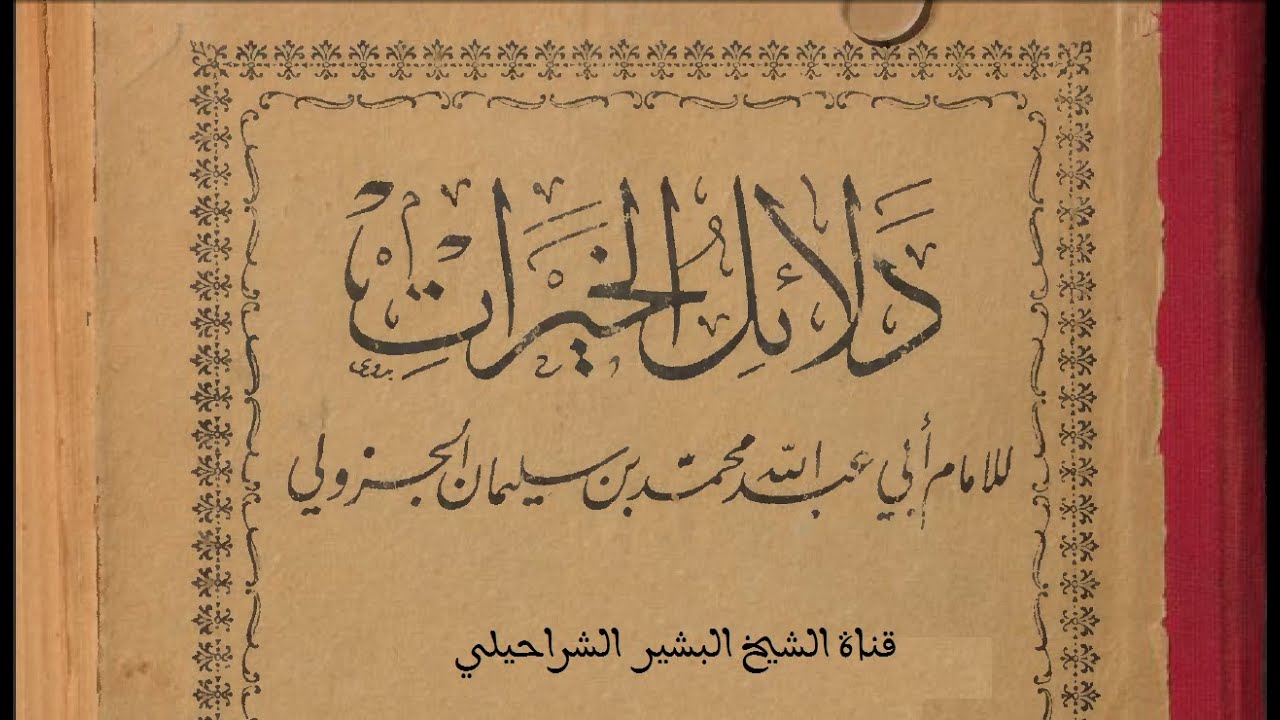 دَلَائِلُ الْخَيْرَاتِ
للامام أبي عبد الله محمّد بن سليمان الجزولي
قناة الشيخ البشير الشراحيلي